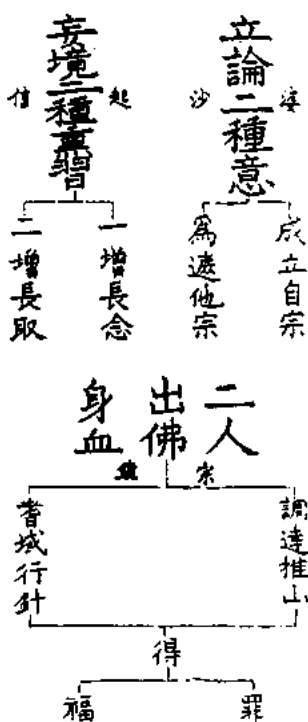 立論二種意
婆沙
成立自宗
為遮他宗
妄境二種熏習
起信
一增長念
二增長取
二人
出佛
身血
宗
調達推山
耆域行針
得
罪
福